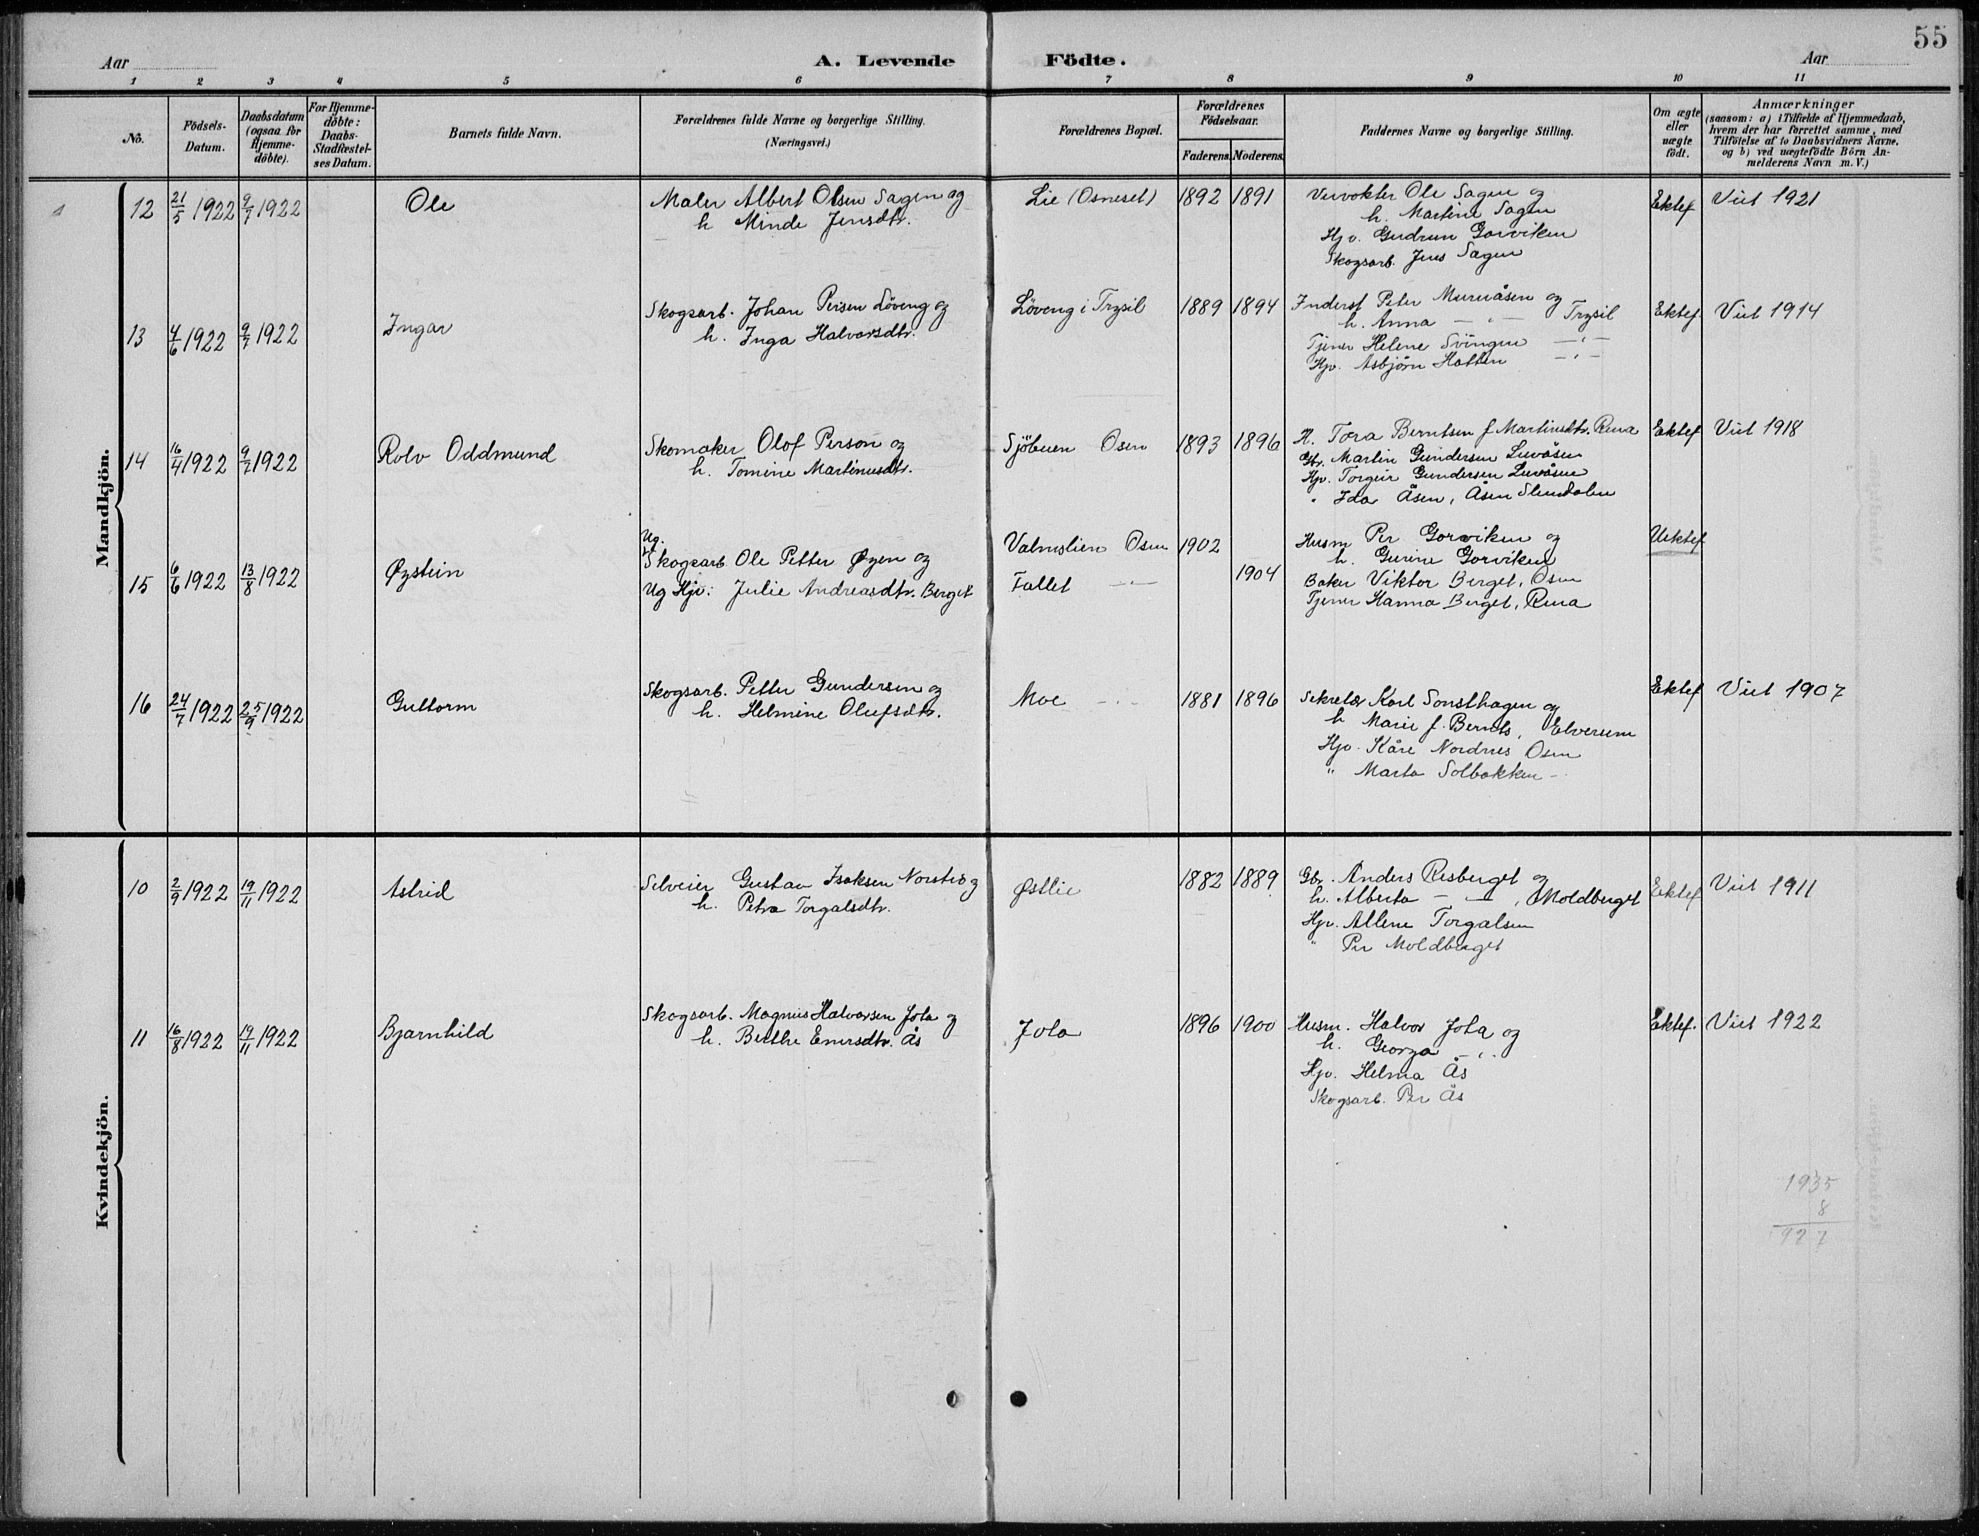 55
Aar A. Levende Födte. Aar
1 2 3 4 5 6 7 8 9 10 11
No. Födsels-Datum. Daabsdatum (ogsaa for Hjemme-döbte). For Hjemme-döbte: Daabs-Stadfæstel-ses Datum. Barnets fulde Navn. Forældrenes fulde Navne og borgerlige Stilling. (Næringsvei.) Forældrenes Bopæl. Forældrenes Födselsaar. Faderens. Moderens. Faddernes Navne og borgerlige Stilling. Om ægte eller uægte födt. Anmærkninger (saasom: a) i Tilfælde af Hjemmedaab, hvem der har forrettet samme, med Tilföielse af to Daabsvidners Navne. og b) ved uægtefödte Börn An-melderens Navn m. V.)
Mandkjön.
12 21/5 1922 9/7 1922 Ole Maler Albert Olsen Sagen og Lie (Osneset) 1892 1891 Ole Sagen og Ektef Viet 1921
h Minde Jensdtr. h. Martine Sagen
Hjv. Gudrun Gorviken
Skogsarb. Jens Sagen
13 4/6 1922 9/7 1922 Ingar Skogsarb. Johan Persen Löveng og Löveng i Trysil 1889 1894 Inderst Peter Murusåsen og Trysil Ektef Viet 1914
h. Inga Halvorsdtr. h. Anna — " —
Tjener Helene Svingen — " —
Hjv. Asbjörn Hatten — " —
14 16/4 1922 9/7 1922 Rolv Oddmund Skomaker Olof Person og Sjöbuen Osen 1893 1896 H. Tora Berntsen f. Martinsdtr. Rena Ektef Viet 1918
h. Tomine Martinusdtr. Gbr. Martin Gundersen Luvåsen
Hjv. Torgeir Gundersen Luvåsen
" Ida Åsen, Åsen Slemdalen
15 6/6 1922 13/8 1922 Øystein Ug. Skogsarb Ole Petter Øyen og Valmslien Osen 1902 Husm Per Gorviken og Uektef
h. Gurine Gorviken
Ug Hjv: Julie Andreasdtr. Berget Fallet — " — 1904 Baker Viktor Berget, Osen
Tjener Hanna Berget, Rena
16 24/7 1922 25/9 1922 Guttorm Skogsarb. Petter Gundersen og Moe — " — 1881 1896 Sekretær Karl Sonsthagen og Ektef Viet 1907
h. Helmine Olufsdtr. h Marie f. Bernts, Elverum
Hjv. Kåre Nordnes Osen
" Marta Solbakken —
Kvindekjön.
10 2/9 1922 19/11 1922 Astrid Selveier Gustav Isaksen og Østlie 1882 1889 Gbr. Anders Risberget og Ektef Viet 1911
h. Petra Torgalsdtr. h. Alberta — " —, Moldberget
Hjv. Allene Torgalsen
" Per Moldberget
11 16/8 1922 19/11 1922 Bjarnhild Skogsarb. Magnus Halvorsen Jota og Jota 1896 1900 Husm. Halvor Jota og Ektef. Viet 1922
h. Berthe Enersdtr. Ås h. Georga — " —
Hjv. Helma Ås
Skogsarb. Per Ås
1935
8
927